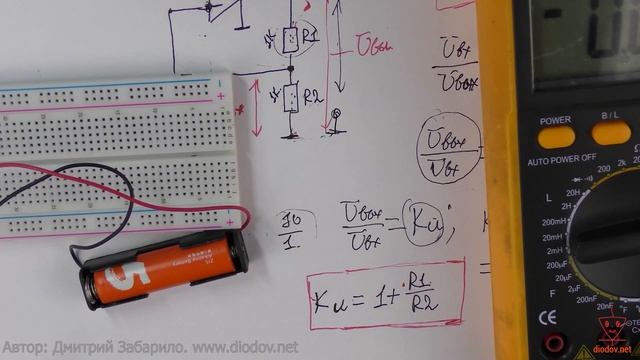 R1
Uвых
R2
Uвх
Uвых
Uвых
Uвх
10
1
Uвых
Uвх
= Ku;
Ku = 1 + R1
R2
5
POWER
B / L
AUTO POWER OFF
200
2k
20H
L
200mH
20mH
2mH
200µF
20µF
2µF
F
Автор: Дмитрий Забарило. www.diodov.net
diodov.net